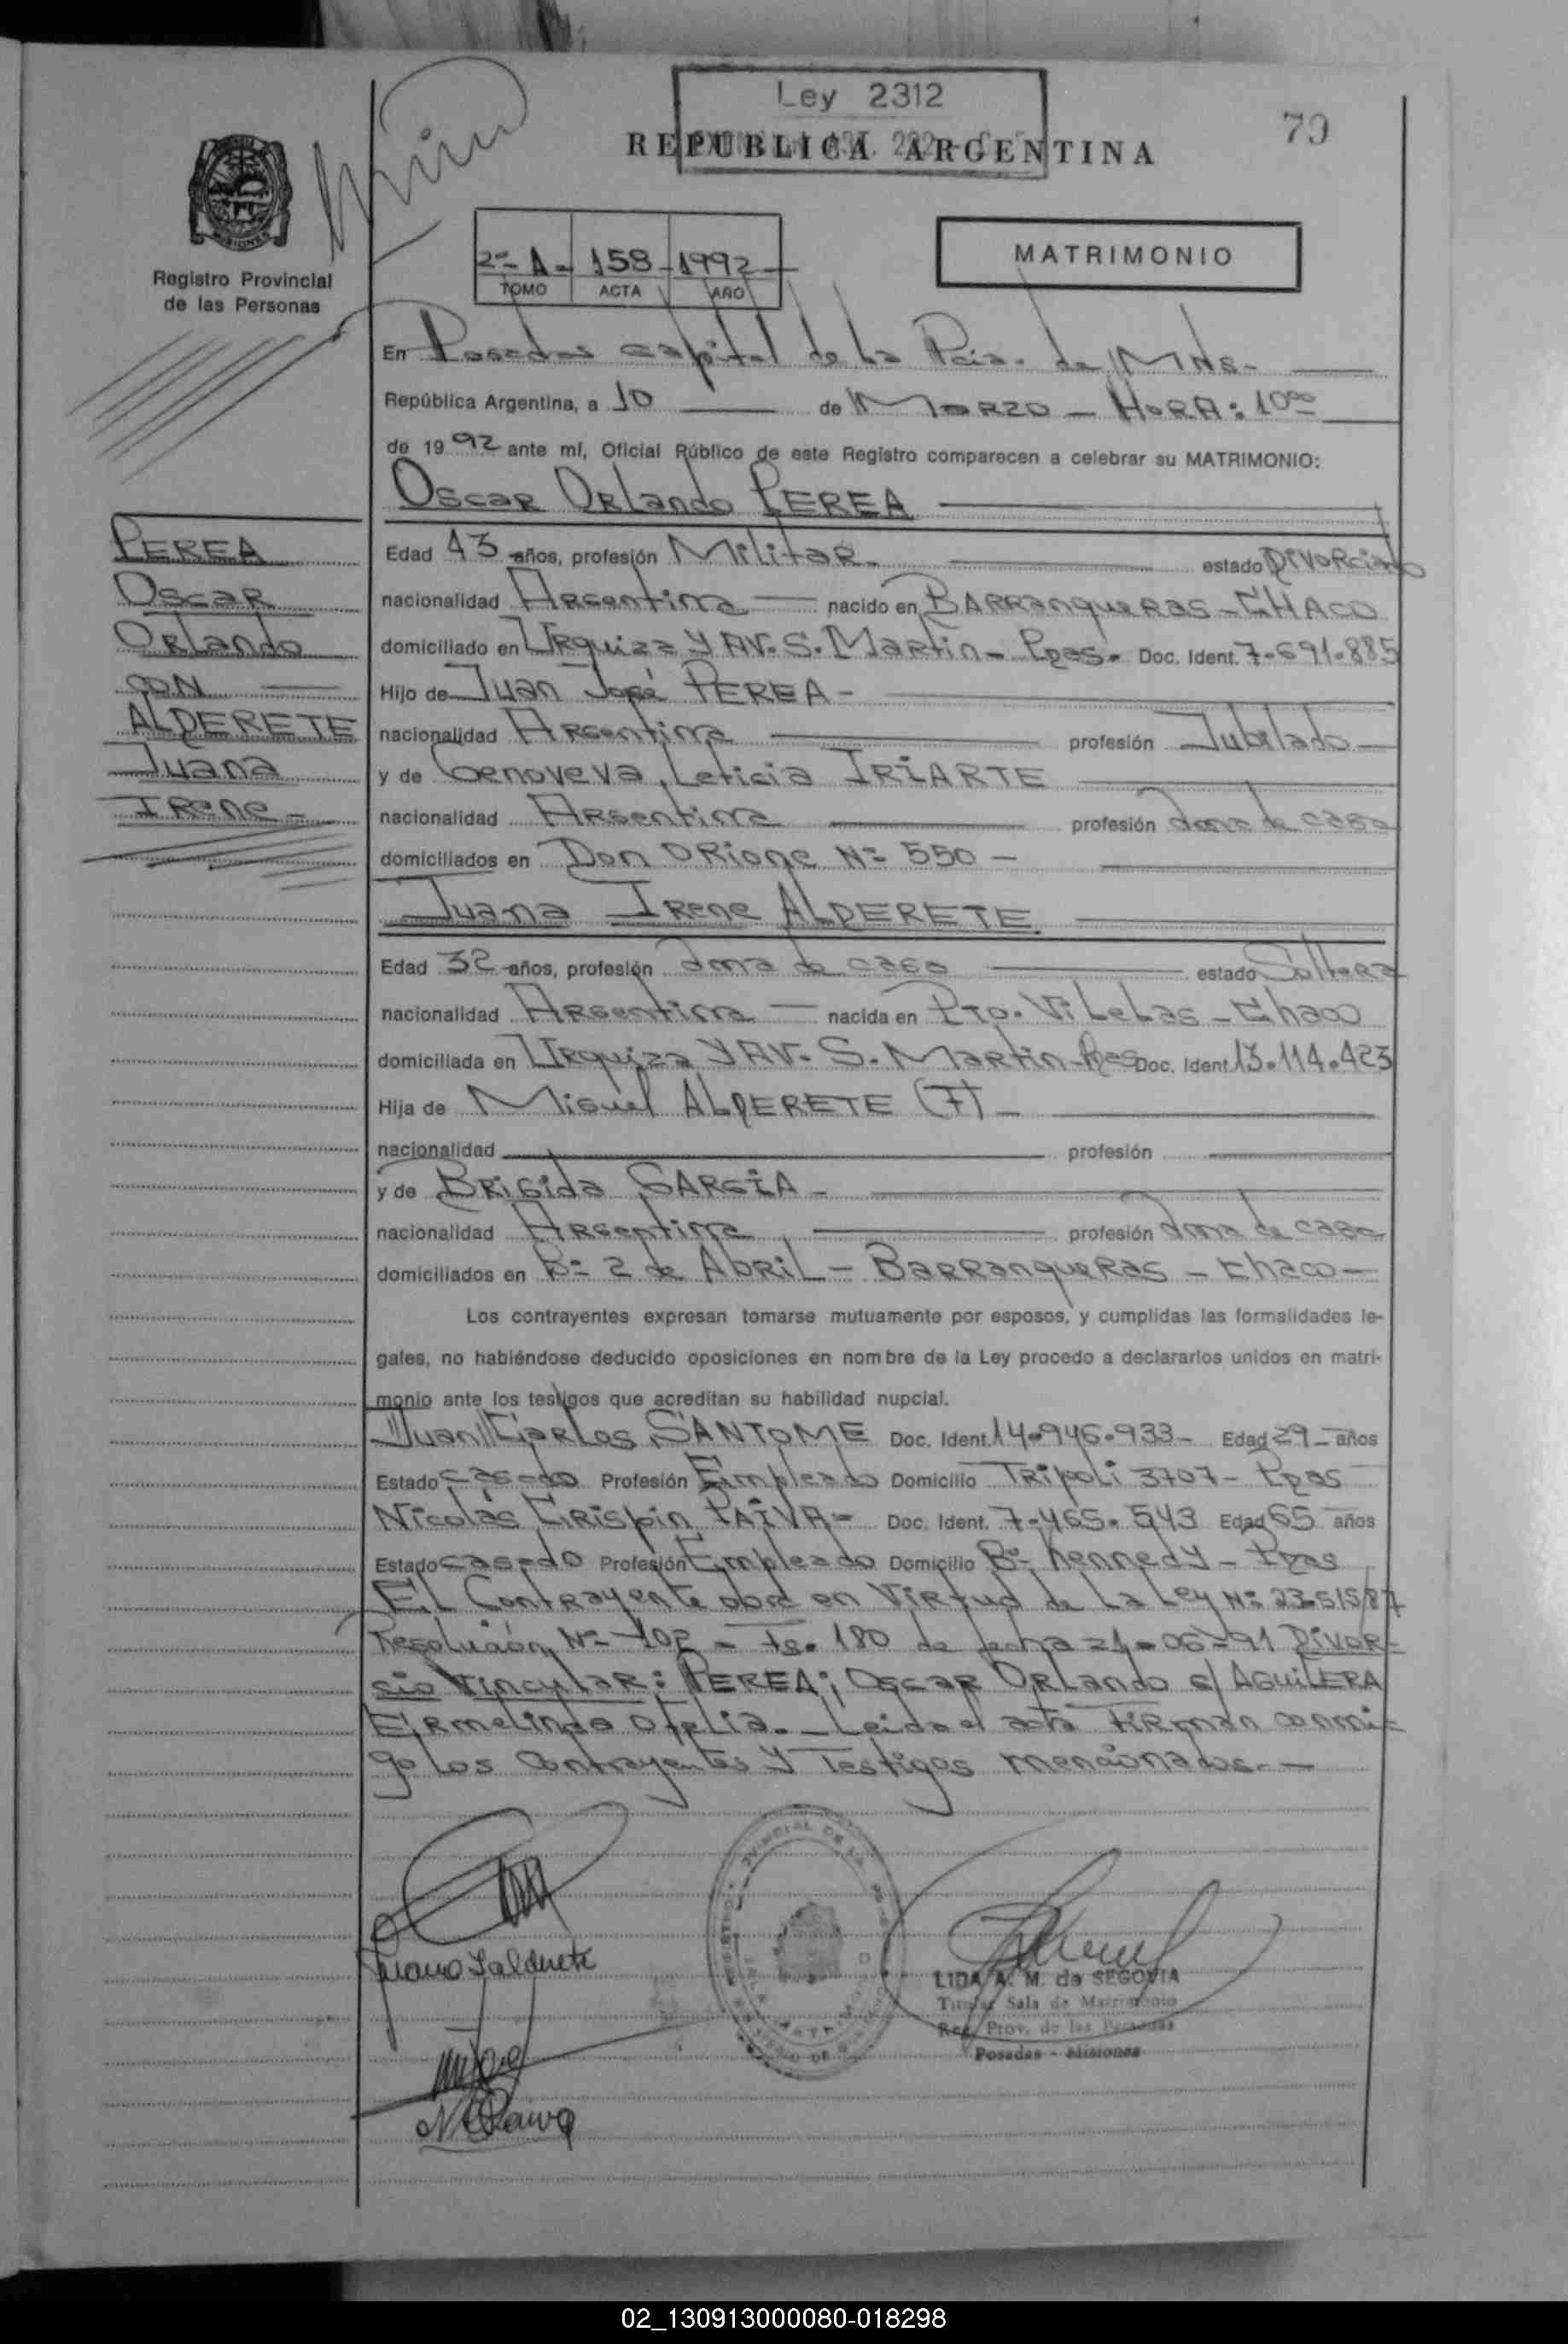 Ley 2312
REPUBLICA ARGENTINA
79
MISIONES
Registro Provincial
de las Personas
2º A - 158 - 1992 -
TOMO ACTA AÑO
MATRIMONIO
En Posadas capital de la Pcia. de Mnes-
República Argentina, a 10 de Marzo - Hora: 10ºº
de 1992 ante mí, Oficial Público de este Registro comparecen a celebrar su MATRIMONIO:
Oscar Orlando PEREA
PEREA
Oscar
Orlando
CON
ALDERETE
Juana
Irene -
Edad 43 años, profesión Militar. estado Divorciado
nacionalidad Argentina nacido en Barranqueras - Chaco
domiciliado en Urquiza y Av. S. Martin - Pdas. Doc. Ident. 7.691.885
Hijo de Juan José PEREA -
nacionalidad Argentina profesión Jubilado
y de Genoveva Leticia IRIARTE
nacionalidad Argentina profesión Ama de casa
domiciliados en Don Orione Nº 550 -
Juana Irene ALDERETE
Edad 32 años, profesión Ama de casa estado Soltera
nacionalidad Argentina nacida en Pto. Vilelas - Chaco
domiciliada en Urquiza y Av. S. Martin - Pdas Doc. Ident. 13.114.423
Hija de Miguel ALDERETE (F) -
nacionalidad profesión
y de Brigida GARCIA -
nacionalidad Argentina profesión Ama de casa
domiciliados en Bº 2 de Abril - Barranqueras - Chaco -
Los contrayentes expresan tomarse mutuamente por esposos, y cumplidas las formalidades le-
gales, no habiéndose deducido oposiciones en nombre de la Ley procedo a declararlos unidos en matri-
monio ante los testigos que acreditan su habilidad nupcial.
Juan Carlos SANTOME Doc. Ident. 14.946.933 - Edad 29 - años
Estado casado Profesión Empleado Domicilio Tripoli 3707 - Pdas
Nicolás Crispin PAIVA - Doc. Ident. 7.465.543 Edad 65 años
Estado casado Profesión Empleado Domicilio Bº Kennedy - Pdas
El Contrayente obra en Virtud de La Ley Nº 23.515/87
Resolución Nº 102 - Fs. 180 de fecha 21-06-91 Divor-
sio Vincular: PEREA; Oscar Orlando c/ AGUILERA
Ermelinda Ofelia. - Leida el acta Firman conmi-
go los Contrayentes y Testigos mencionados. -
Juana I alderete
LIDA A. M. de SEGOVIA
Titular Sala de Matrimonio
Reg. Prov. de las Personas
Posadas - Misiones
N C Paiva
02_130913000080-018298